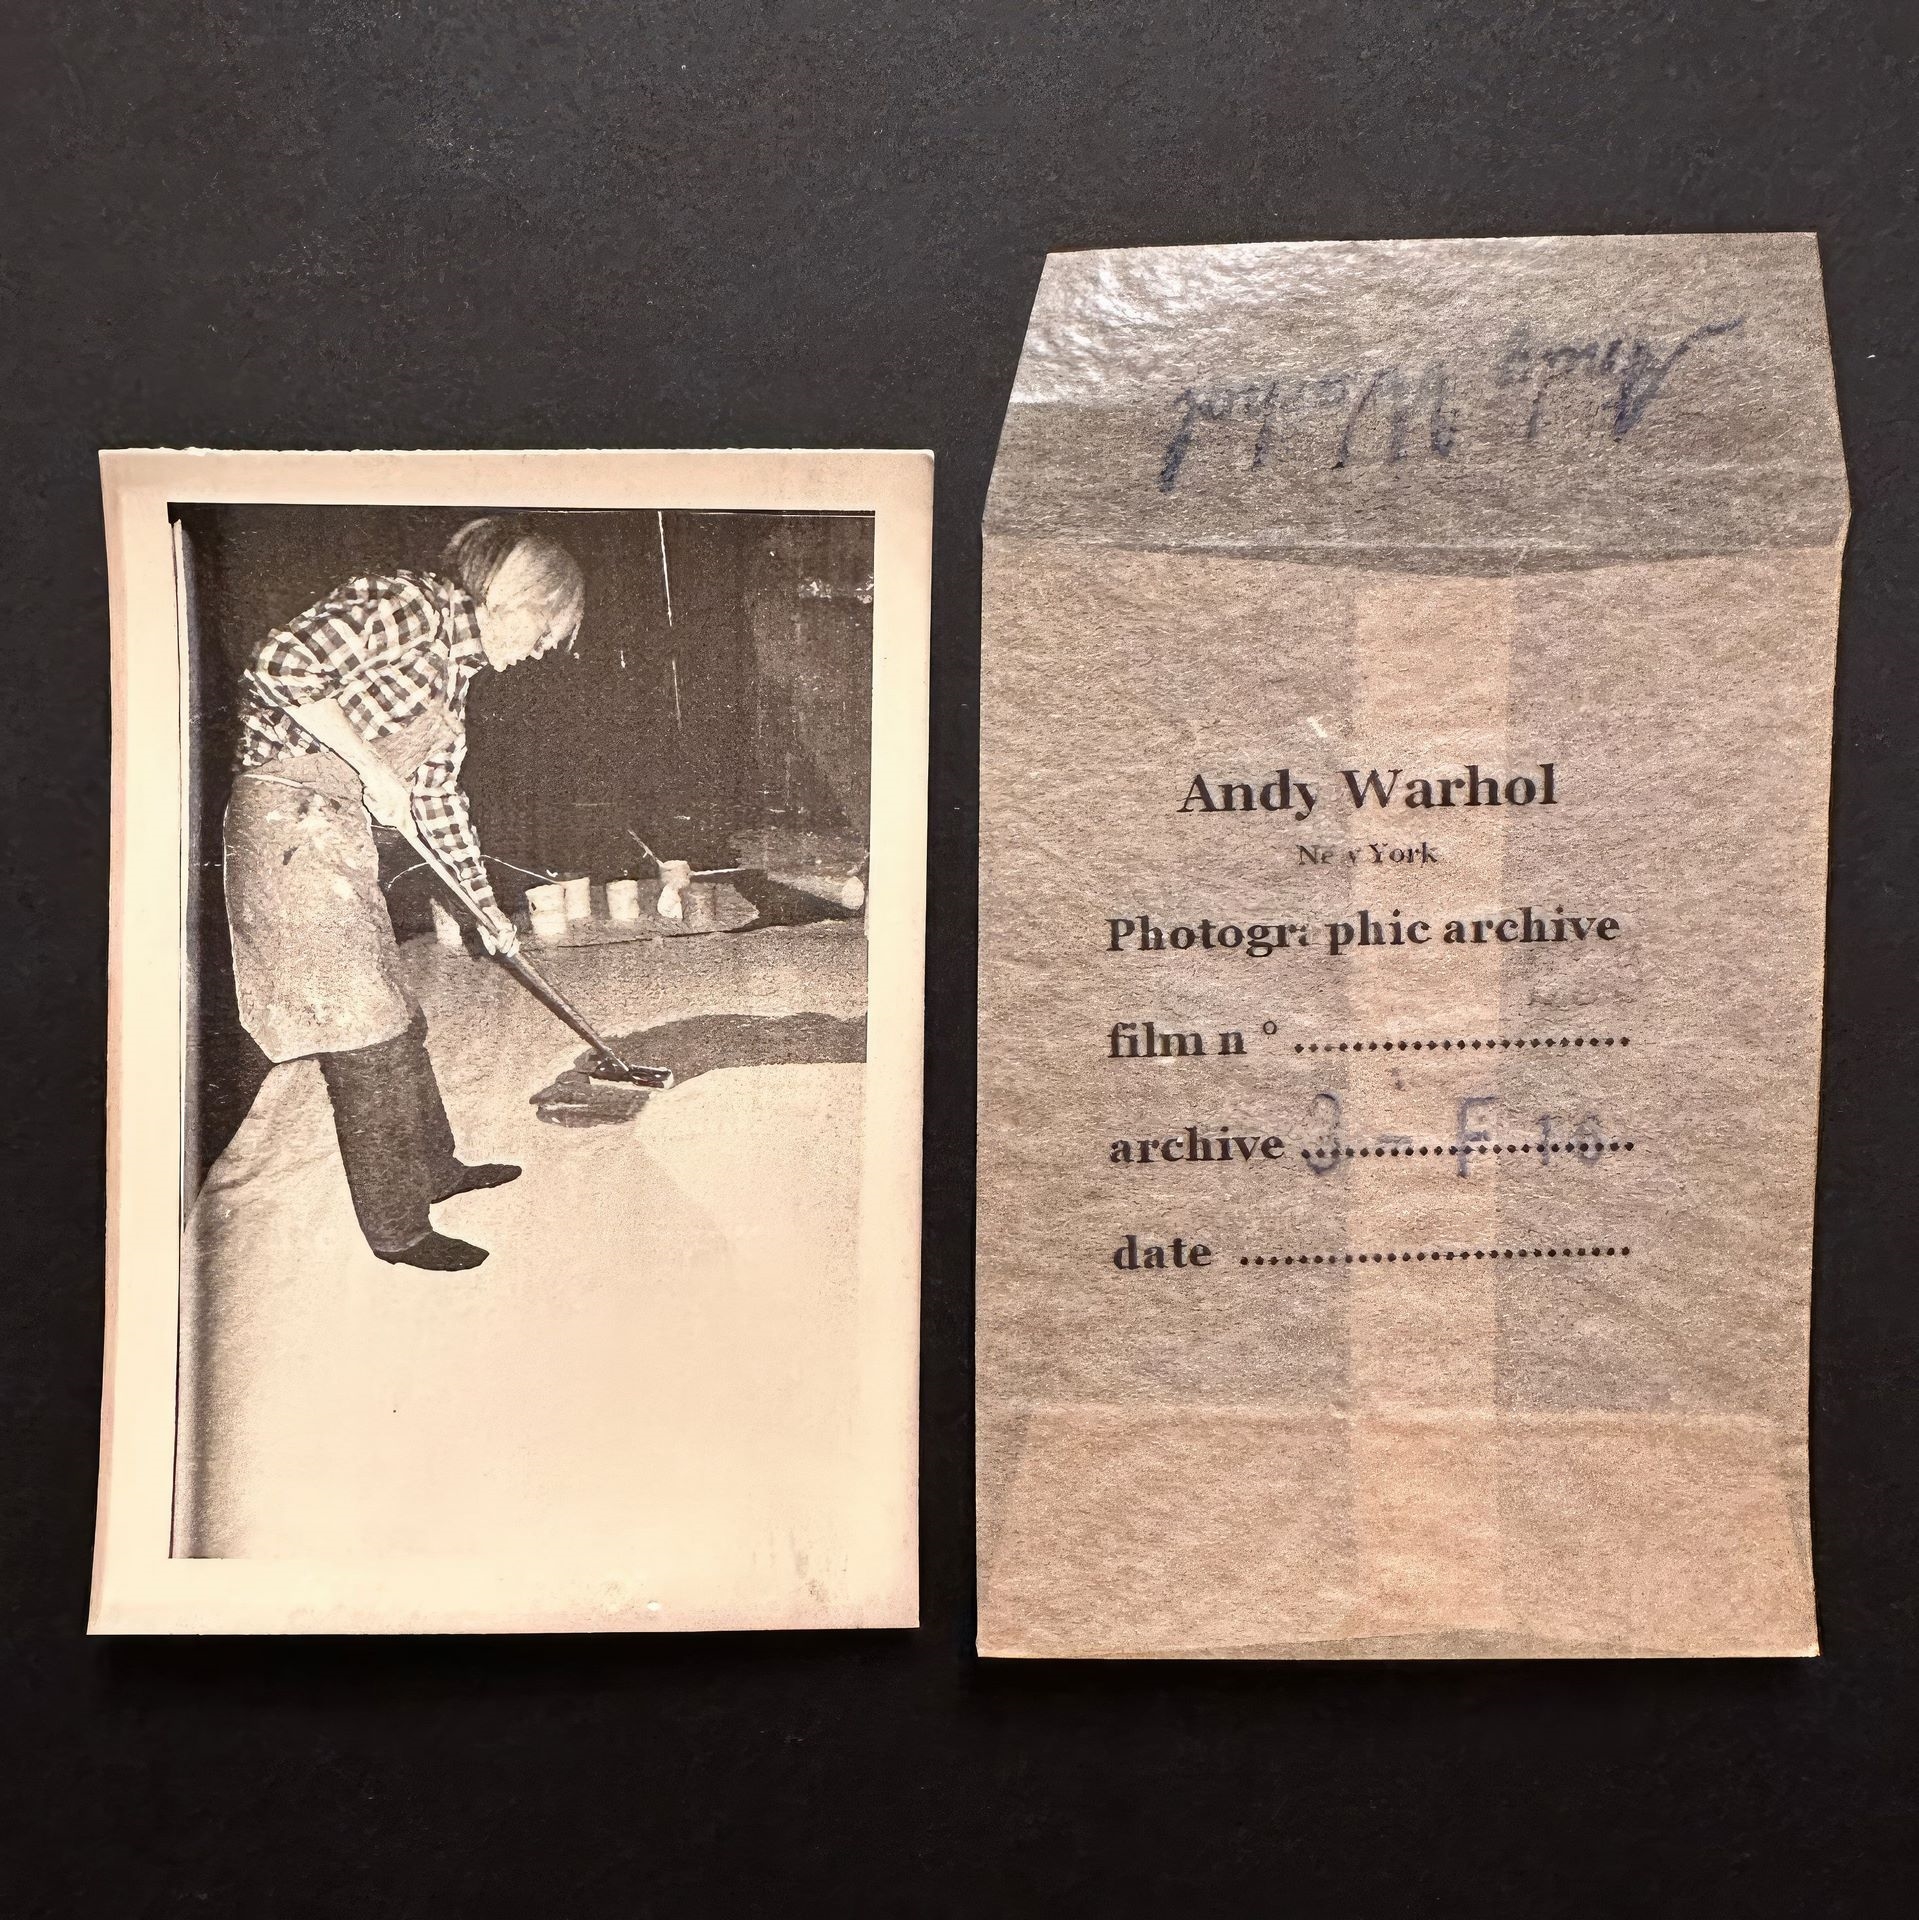 Andy Warhol
Andy Warhol
New York
Photographic archive
film n° ........................
archive 3 - F 10
date ............................